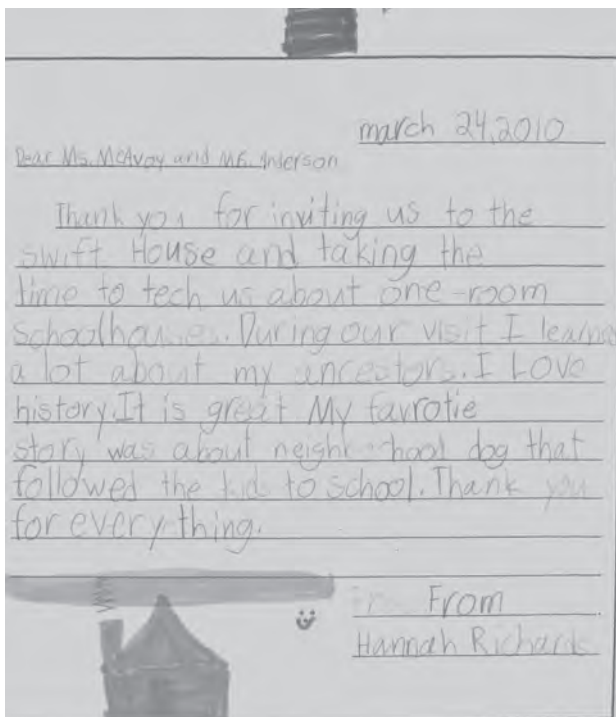 march 24, 2010
Dear Ms. McAvoy and Mr. Anderson
Thank you for inviting us to the
swift House and taking the
time to tech us about one-room
schoolhouses. During our visit I learned
a lot about my ancestors. I LOVE
history. It is great My favrotie
story was about neighborhood dog that
followed the kids to school. Thank you
for every thing.
From
Hannah Richards